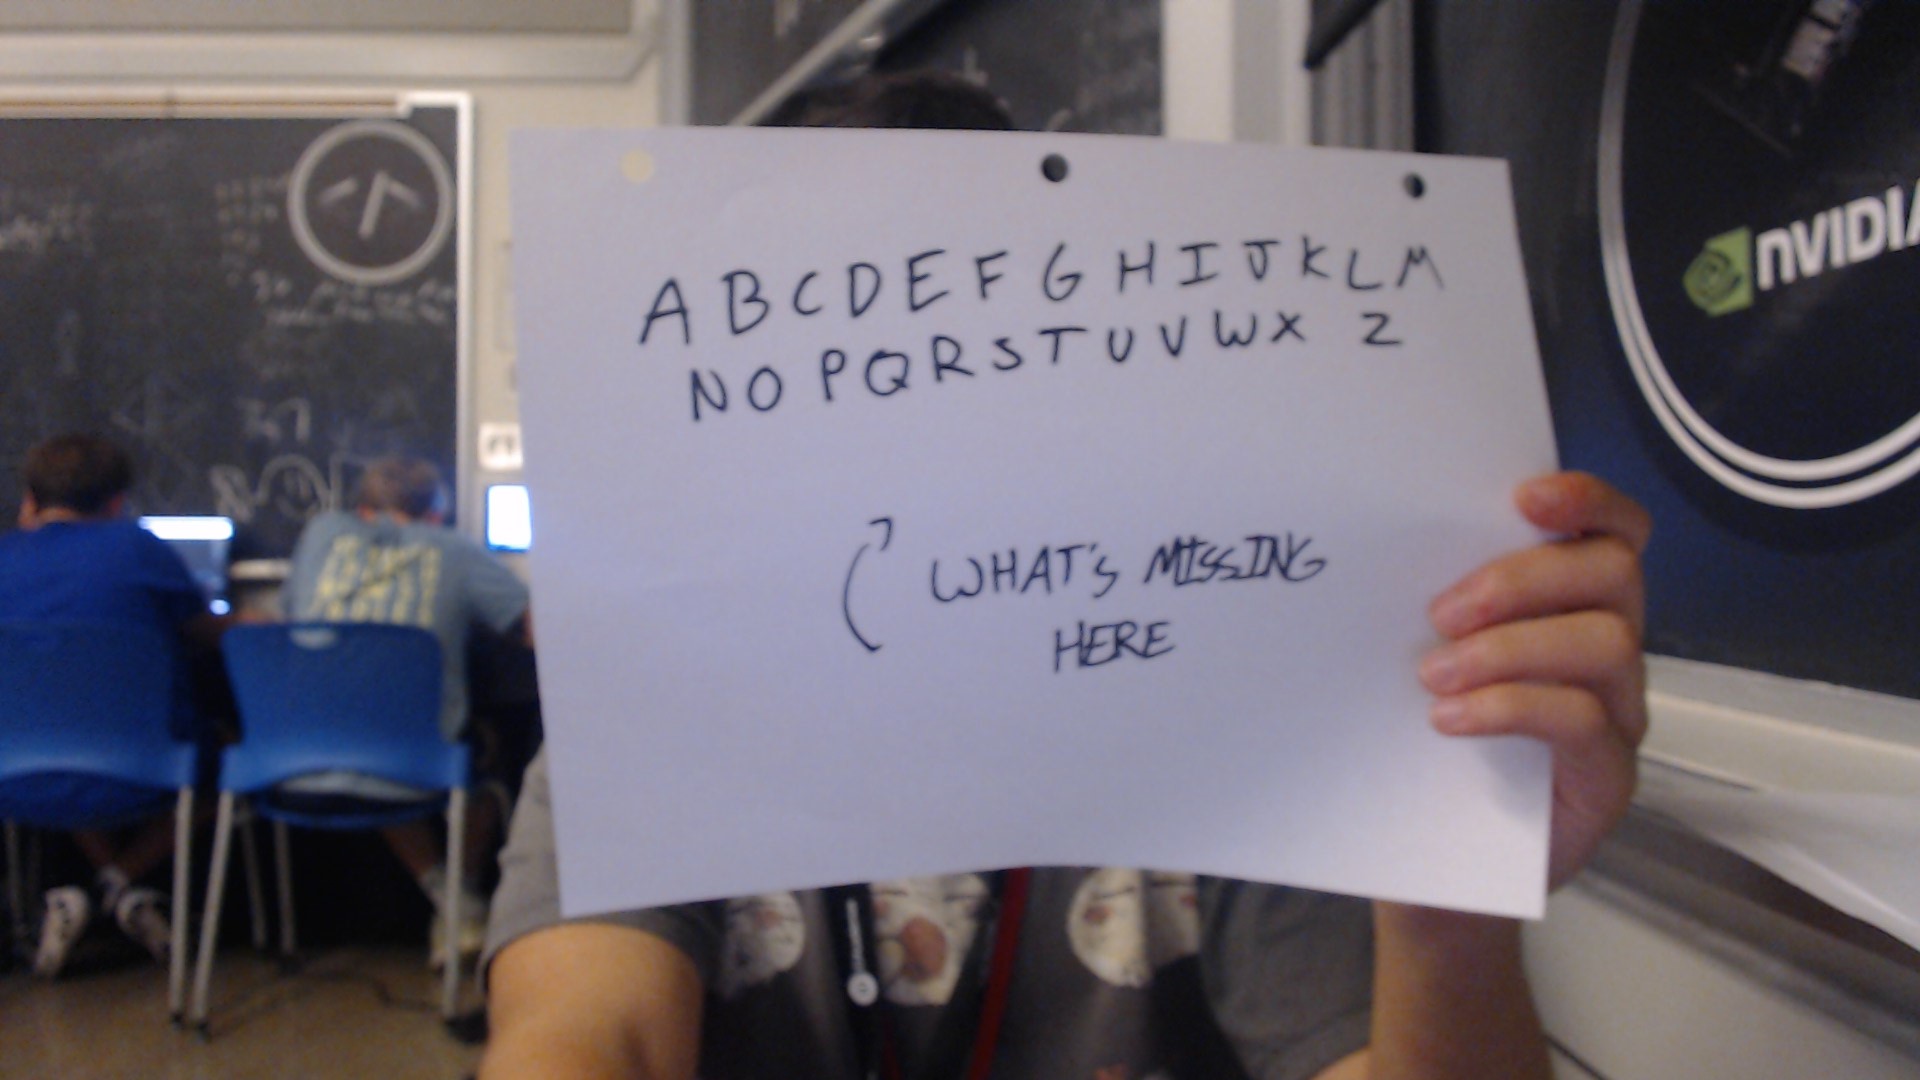 ABCDEFGHIJKLM
NOPQRSTUVWX Z
WHAT'S MISSING
HERE
NVIDIA
37